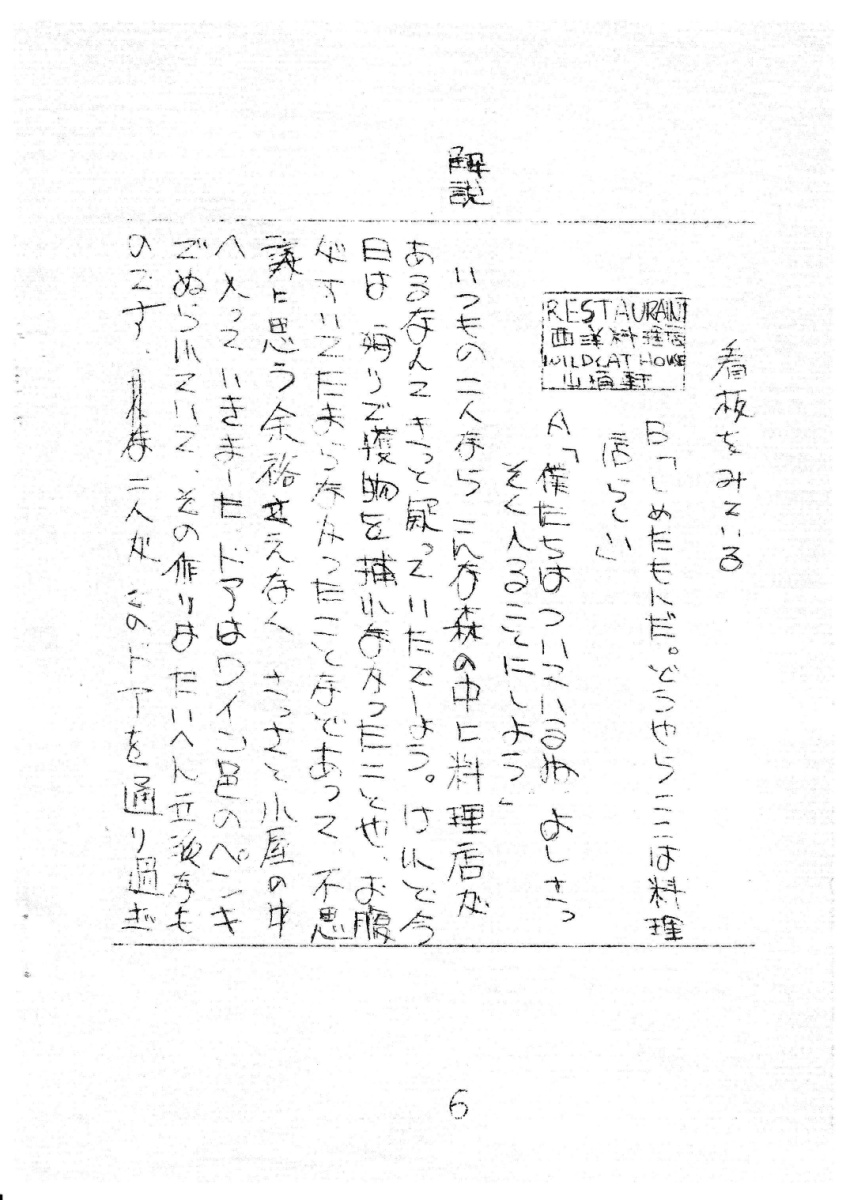 看板をみている
B「しめたもんだ。どうやらここは料理
店らしい」
RESTAURANT
西洋料理店
WILDCAT HOUSE
山猫軒
A「僕たちはついているぬ よしさっ
そく入ることにしよう」
解説
いつもの二人なら こんな森の中に料理店が
あるなんてきっと疑っていたでしょう。けれど今
日は 狩りで獲物を捕れなかったことや、お腹
がすいてたまらなかったことなどあって、不思
議に思う余裕さえなく さっさと小屋の中
へ入っていきました ドアはワイン色のペンキ
でぬられていて、その作りはたいへん立派なも
のです. 二人が このドアを通り過ぎ
6